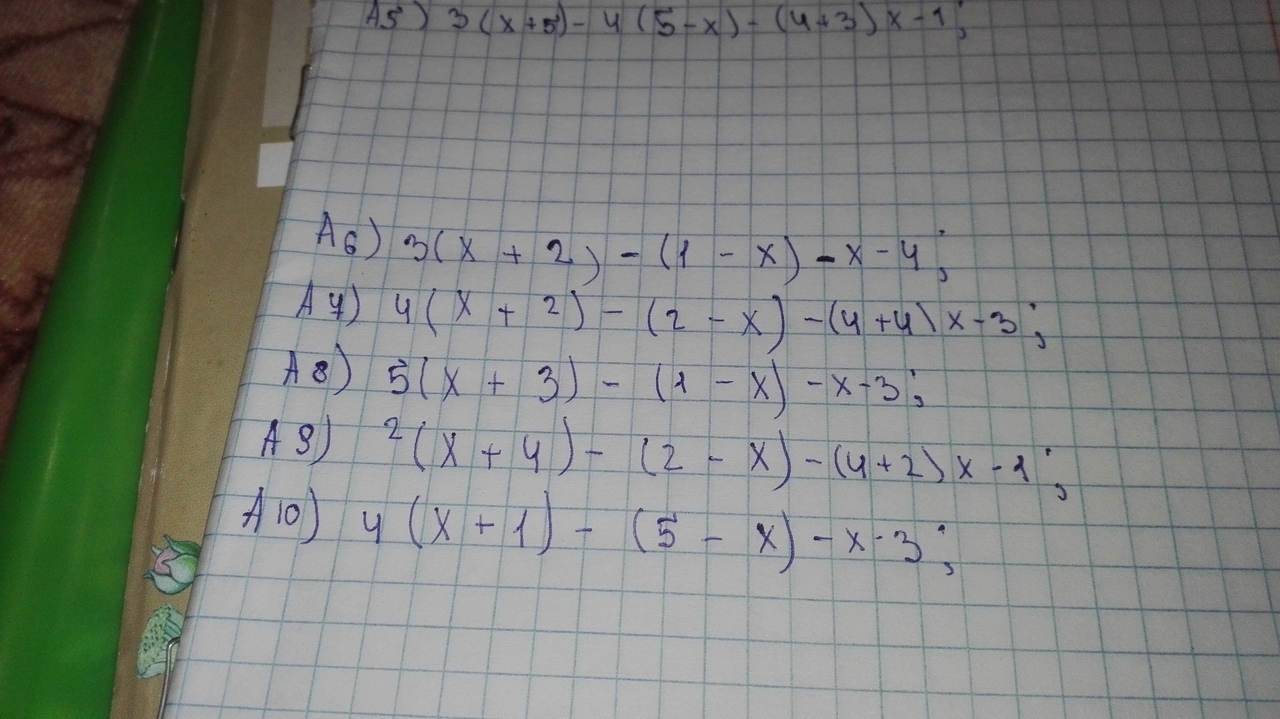 А5) 3(x+5)-4(5-x)-(4+3)x-1;
А6) 3(x+2)-(1-x)-x-4;
А7) 4(x+2)-(2-x)-(4+4)x-3;
А8) 5(x+3)-(1-x)-x-3;
А9) 2(x+4)-(2-x)-(4+2)x-1;
А10) 4(x+1)-(5-x)-x-3;